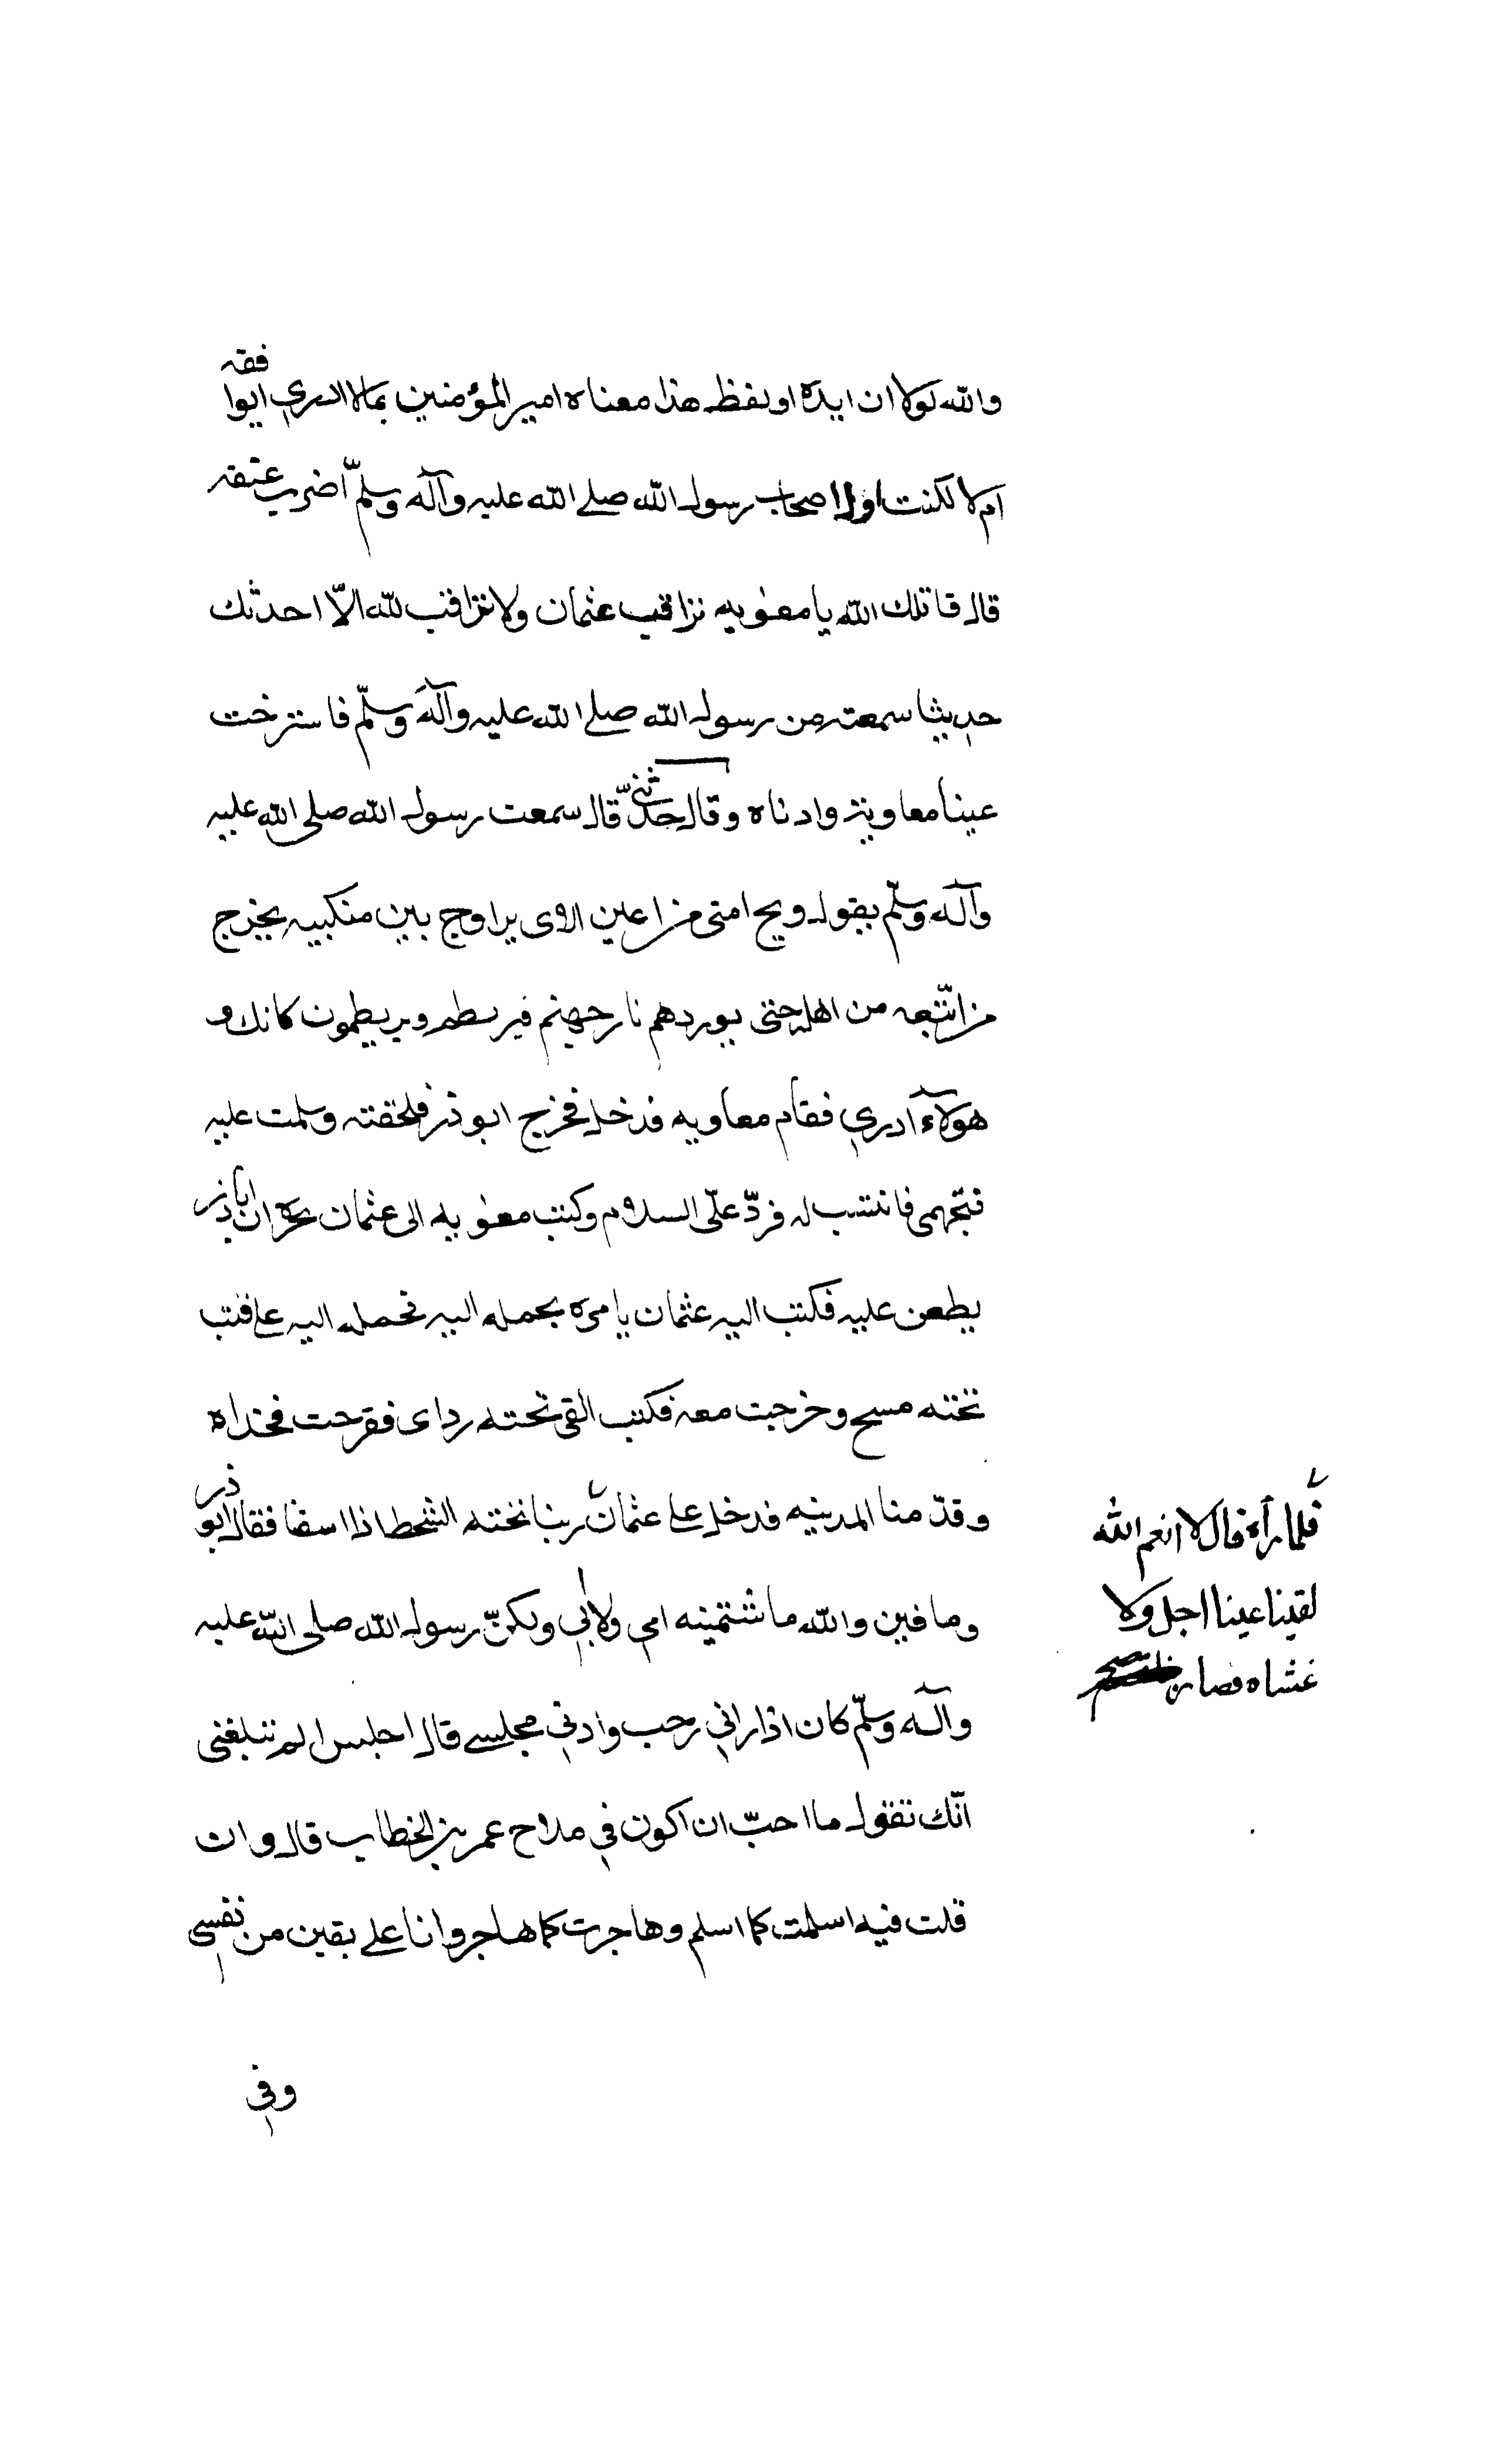 والله لولا ان ايده او لفظ هذا معناه امير المؤمنين بمالا ادري ايوافقه
ام لا لكنت اول اصحاب رسول الله صلى الله عليه وآله وسلّم أضرب عنقه
قال قاتلك الله يا معويه تراقب عثمان ولا تراقب لله الّا احدثك
حديثا سمعته من رسول الله صلى الله عليه وآله وسلّم فاسترخت
عينا معاوية وادناه وقال حدّثني قال سمعت رسول الله صلى الله عليه
وآله وسلّم يقول ويح امتى من اعين الاوى يراوح بين منكبيه يخرج
من اتّبعه من اهله حتى يوردهم نار جهنم فيربطم ويربطمون كانك و
هولاء ادري فقام معاويه فدخل فخرج ابو ذر فلحقته وسلمت عليه
فتجهمى فانتسب له فردّ علّى السلام وكتب معويه الى عثمان يخبره ان اباذر
يطعن عليه فكتب اليه عثمان يامره بحمله اليه فحمله اليه على قتب
تحته مسح وخرجت معه فكنت القى تحته رداى فقرحت فخذاه
وقدّمنا المدينه فدخل على عثمان ربنا تحته الشحط اذا اسفا فقال ابو ذر
وما فين والله ما شتمينه امي ولا بي ولكنّ رسول الله صلى الله عليه
وآله وسلّم كان اذا راني رحب وادني مجلسي قال اجلس الم تبلغنى
انّك تقول ما احبّ ان اكون في ملاح عمر بن الخطاب قال وان
قلت فيه اسلمت كما اسلم وهاجرت كما هاجر وانا على يقين من نفسي
وفي
فلما رآه قال لا انعم الله
لقينا عينا اجل ولا
غشاه فصار